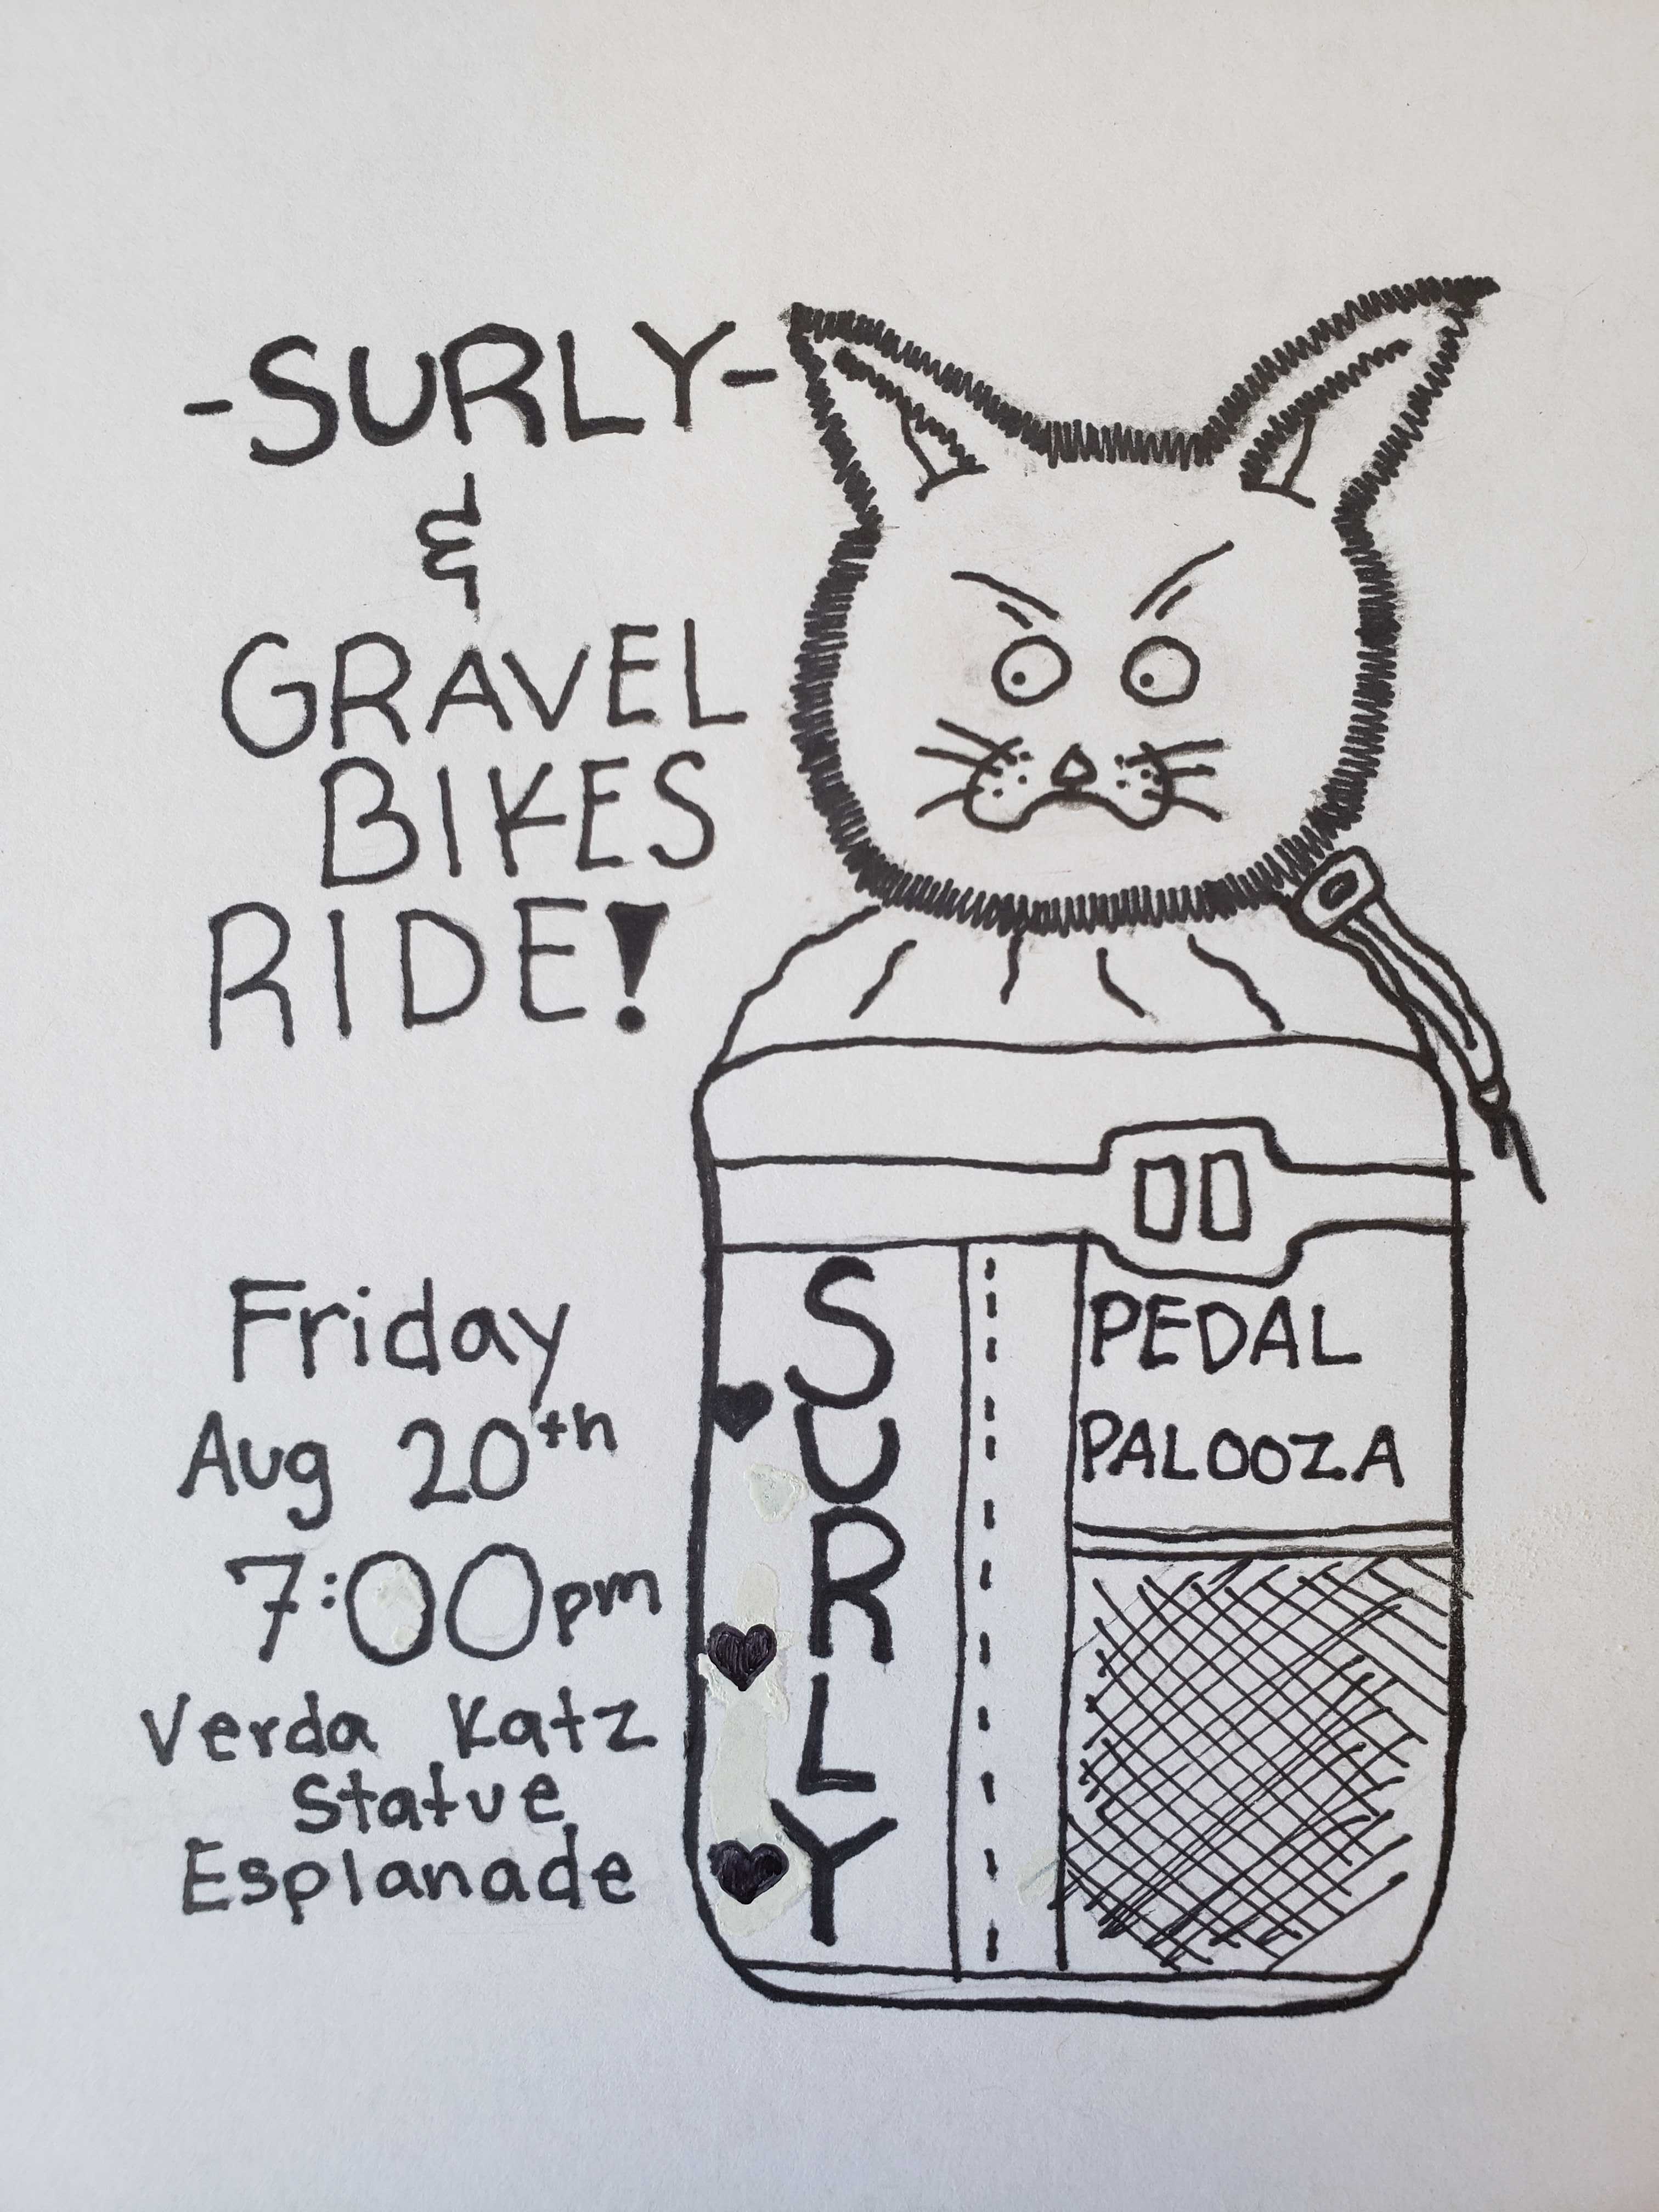 -SURLY-
&
GRAVEL
BIKES
RIDE!
Friday
Aug 20th
7:00pm
Verda Katz
Statue
Esplanade
SURLY
PEDAL
PALOOZA